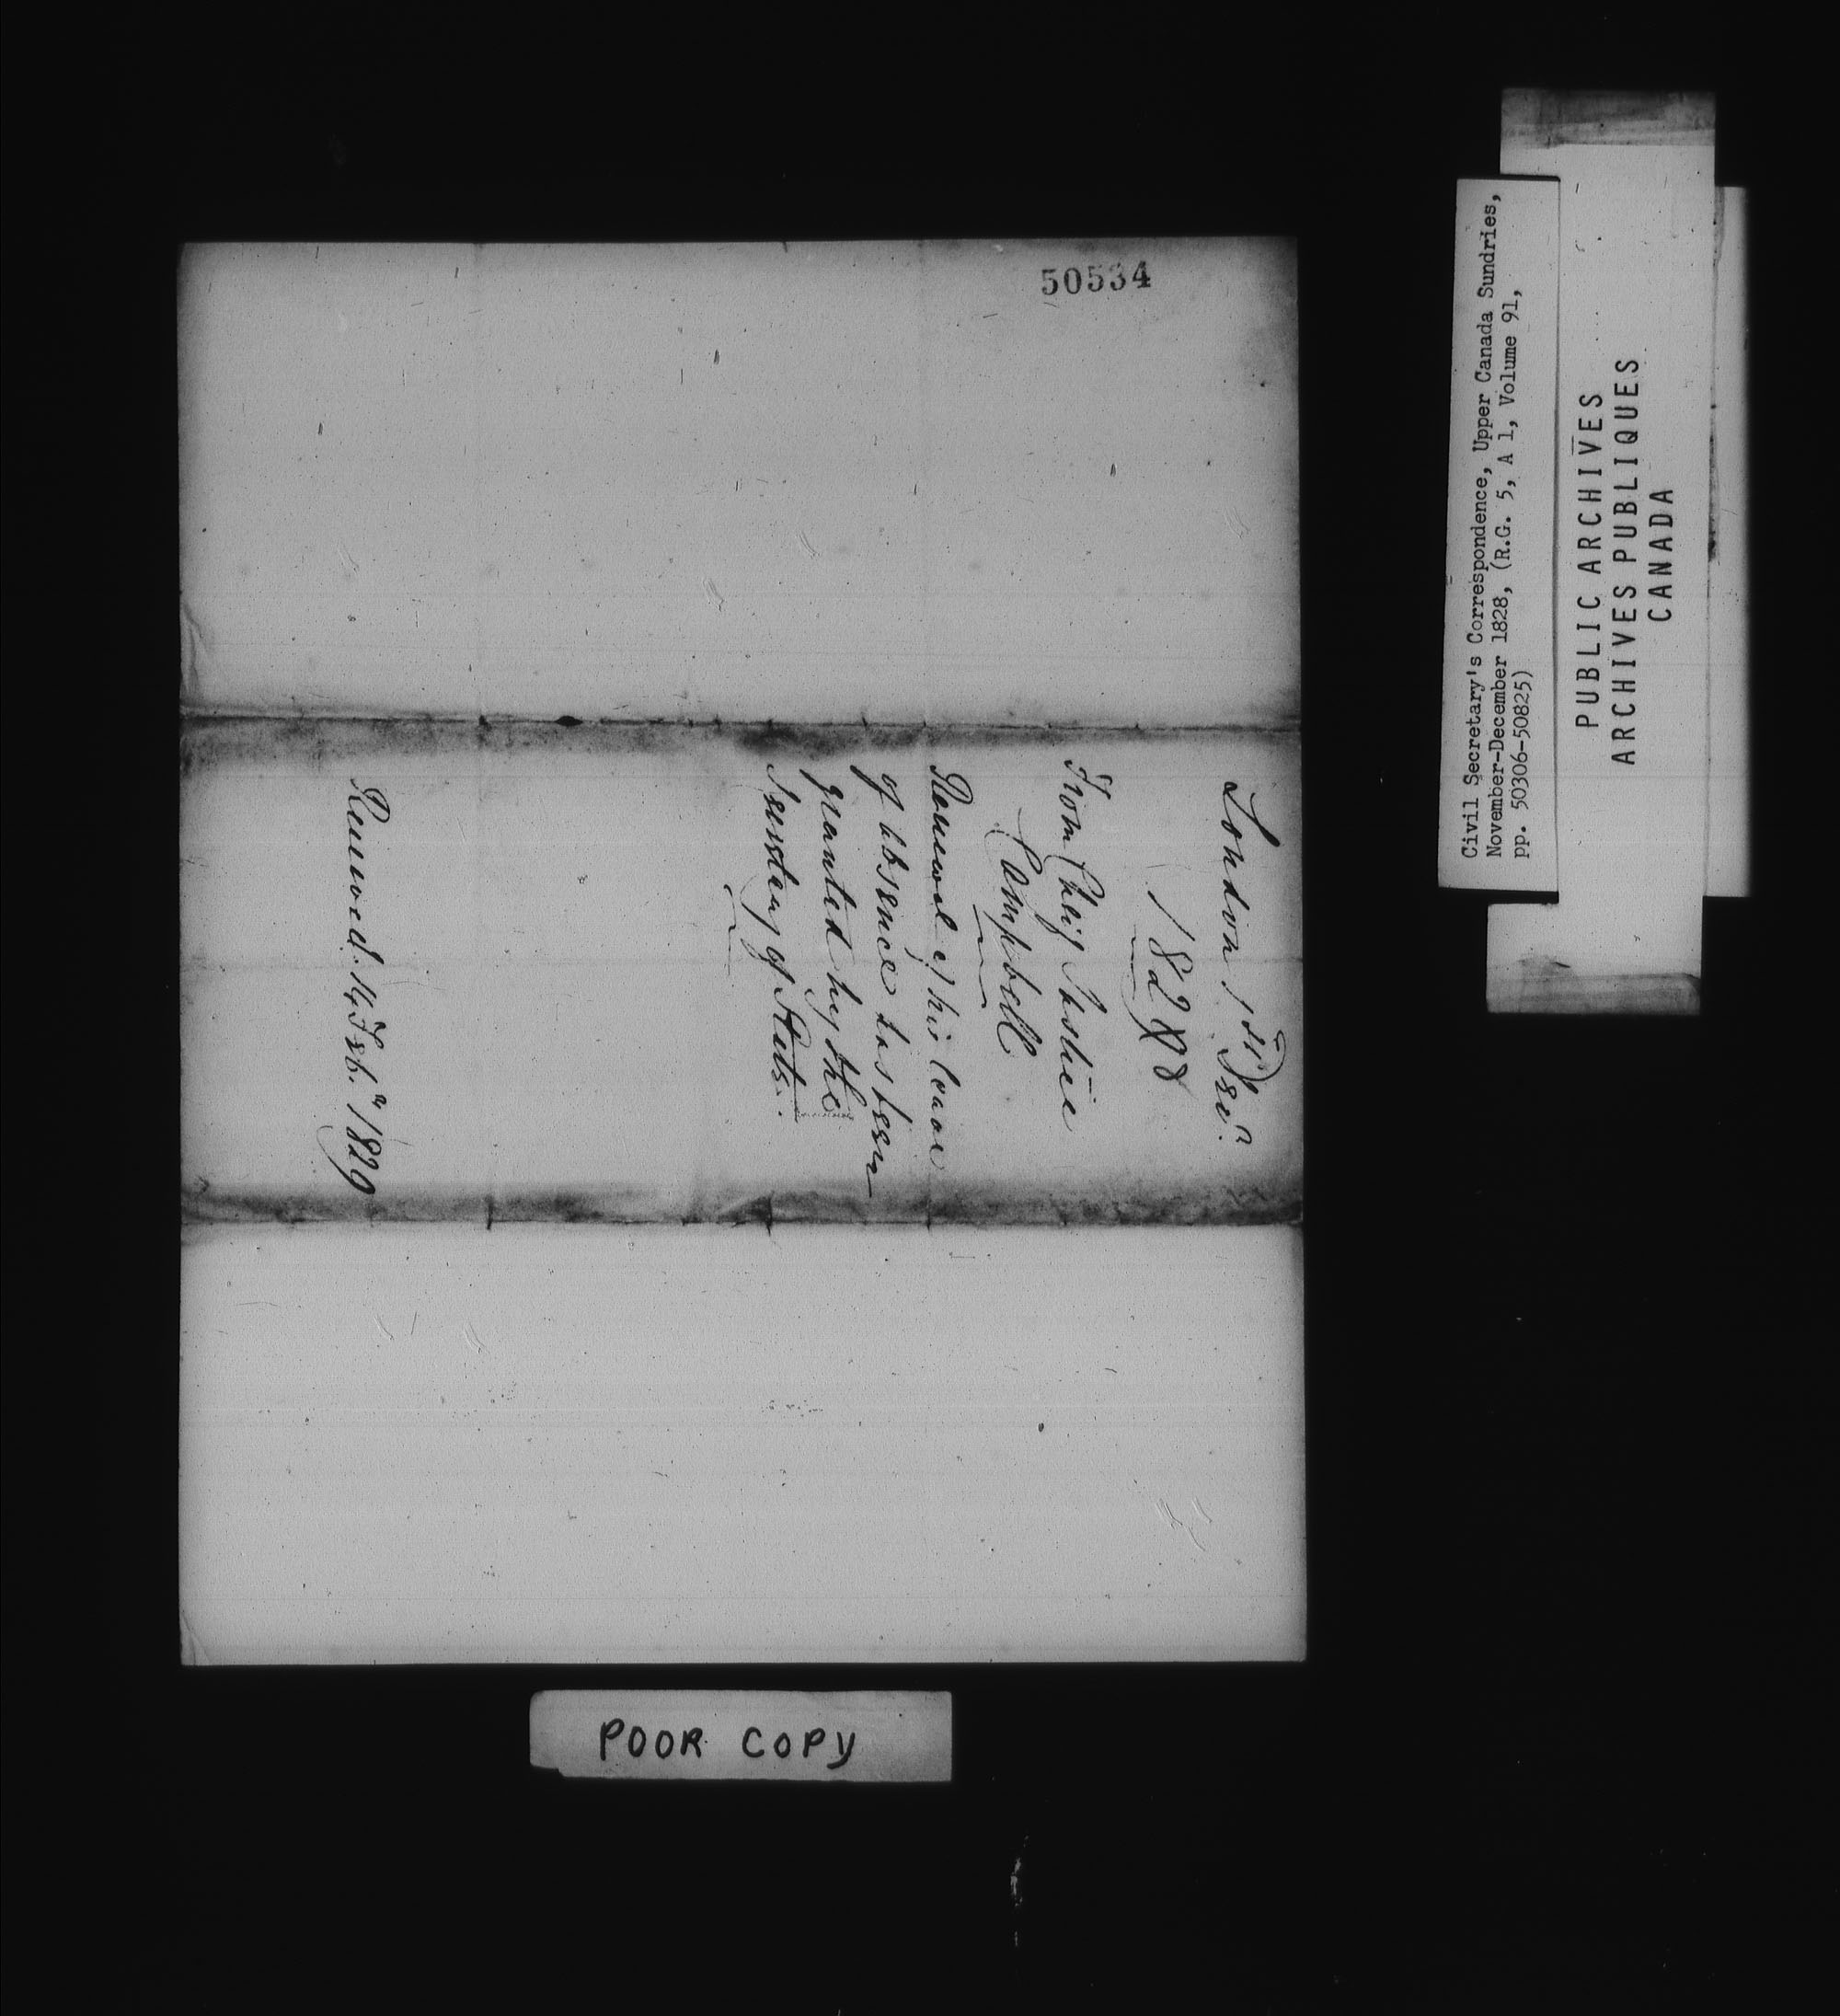 50534
London 1st Decr.
1828
From Chief Justice
Campbell
Renewal of his leave
of absence has been
granted by the
Secretary of State.
Received. 14 Feby. 1829
Civil Secretary's Correspondence, Upper Canada Sundries,
November-December 1828, (R.G. 5, A 1, Volume 91,
pp. 50306-50825)
PUBLIC ARCHIVES
ARCHIVES PUBLIQUES
CANADA
POOR COPY